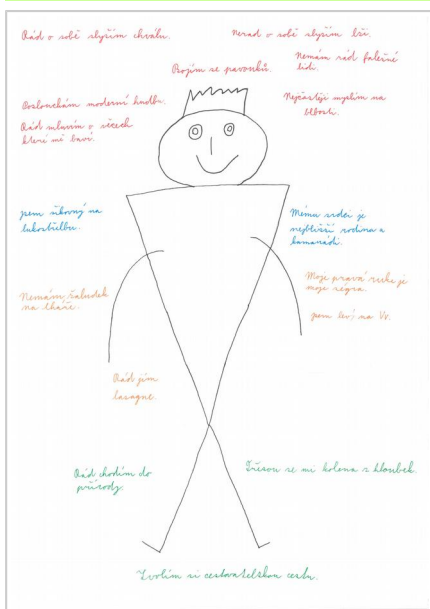 Rád o sobě slyším chválu.
Nerad o sobě slyším lži.
Nemám rád falešné
lidi.
Bojím se pavouků.
Poslouchám moderní hudbu.
Nejčastěji myslím na
blbosti.
Rád mluvím o věcech
které mě baví.
Jsem šikovný na
lukostřelbu.
Mému srdci je
nejbližší rodina a
kamarádi.
Nemám žaludek
na lháře.
Moje pravá ruka je
moje ségra.
Jsem levý na Vv.
Rád jím
lasagne.
Rád chodím do
přírody.
Třesou se mi kolena z hloubek.
Zvolím si cestovatelskou cestu.